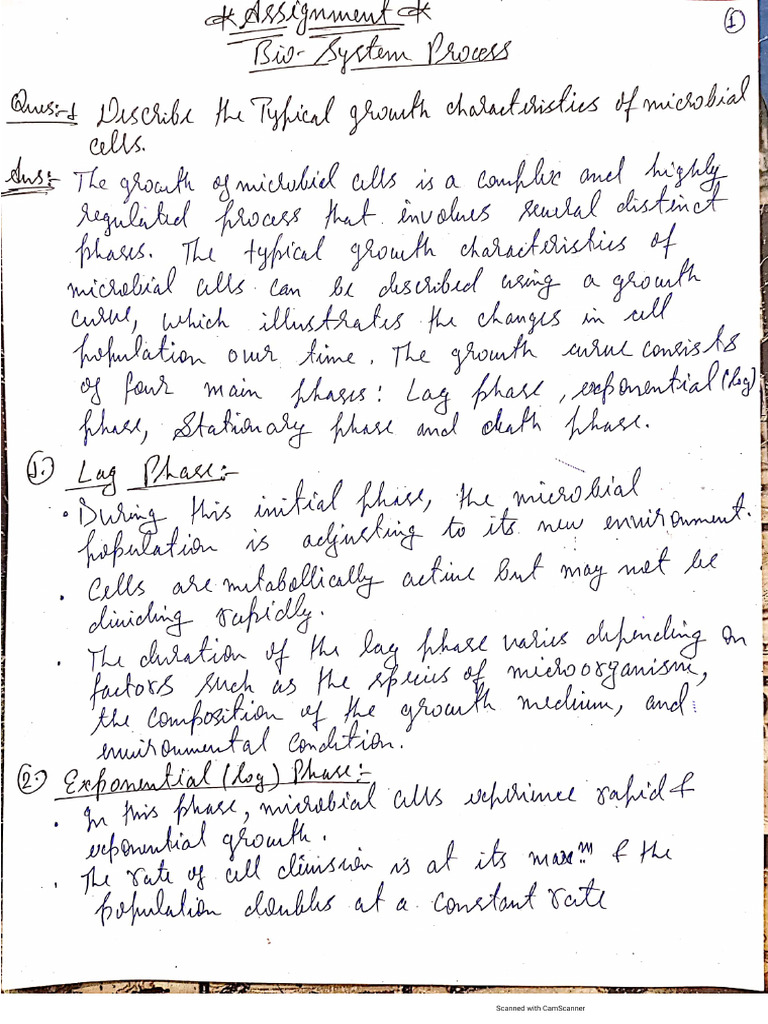 * Assignment *
1
Bio-System Process
Ques:-1 Describe the Typical growth characteristics of microbial
cells.
Ans:- The growth of microbial cells is a complex and highly
regulated process that involves several distinct
phases. The typical growth characteristics of
microbial cells can be described using a growth
curve, which illustrates the changes in cell
population over time. The growth curve consists
of four main phases: Lag phase, exponential (log)
phase, Stationary phase and death phase.
1. Lag Phase:-
• During this initial phase, the microbial
population is adjusting to its new environment.
• Cells are metabollically active but may not be
dividing rapidly.
• The duration of the lag phase varies depending on
factors such as the species of microorganism,
the composition of the growth medium, and
environmental condition.
2. Exponential (log) Phase:-
• In this phase, microbial cells experience rapid &
exponential growth.
• The rate of cell division is at its maxm & the
population doubles at a constant rate
Scanned with CamScanner